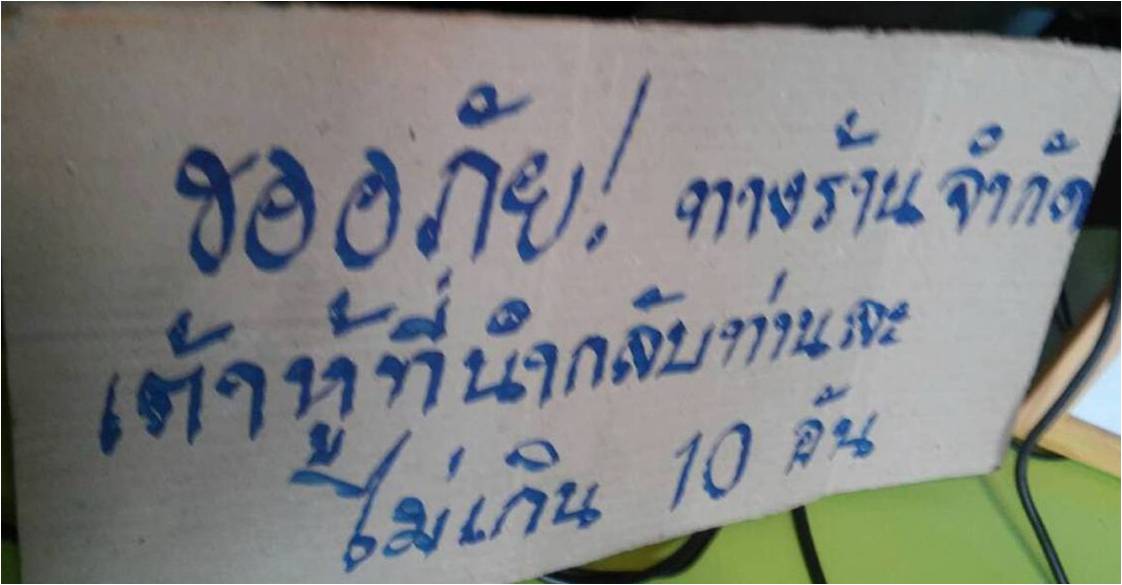 ขออภัย! ทางร้าน จำกัด
เต้าหู้ที่นำกลับท่านละ
ไม่เกิน 10 อัน